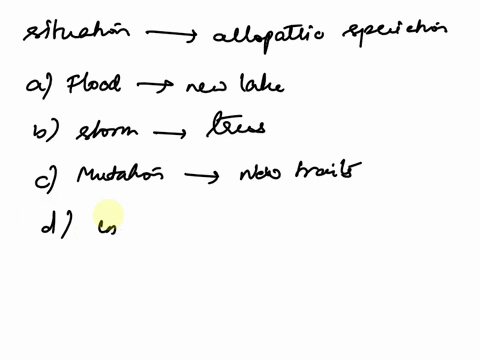 situation → allopatric speciation
a) Flood → new lake
b) storm → trees
c) Mutation → New traits
d)